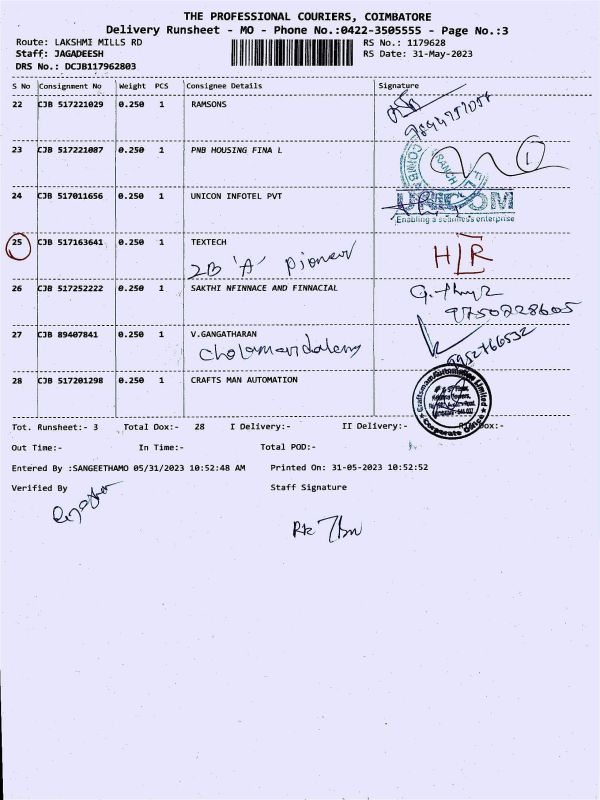 THE PROFESSIONAL COURIERS, COIMBATORE
Delivery Runsheet - MO - Phone No.:0422-3505555 - Page No.:3
Route: LAKSHMI MILLS RD RS No.: 1179628
Staff: JAGADEESH RS Date: 31-May-2023
DRS No.: DCJB117962803
S No Consignment No Weight PCS Consignee Details Signature
22 CJB 517221029 0.250 1 RAMSONS
23 CJB 517221087 0.250 1 PNB HOUSING FINA L
1
24 CJB 517011656 0.250 1 UNICON INFOTEL PVT
Enabling a seamless enterprise
25 CJB 517163641 0.250 1 TEXTECH
2B 'A' Pioneer
26 CJB 517252222 0.250 1 SAKTHI NFINNACE AND FINNACIAL
9750228605
27 CJB 89407841 0.250 1 V.GANGATHARAN
9952766532
28 CJB 517201298 0.250 1 CRAFTS MAN AUTOMATION
Craftsman Automation Limited
Corporate Office
Tot. Runsheet:- 3 Total Dox:- 28 I Delivery:- II Delivery:- Dox:-
Out Time:- In Time:- Total POD:-
Entered By :SANGEETHAMO 05/31/2023 10:52:48 AM Printed On: 31-05-2023 10:52:52
Verified By Staff Signature